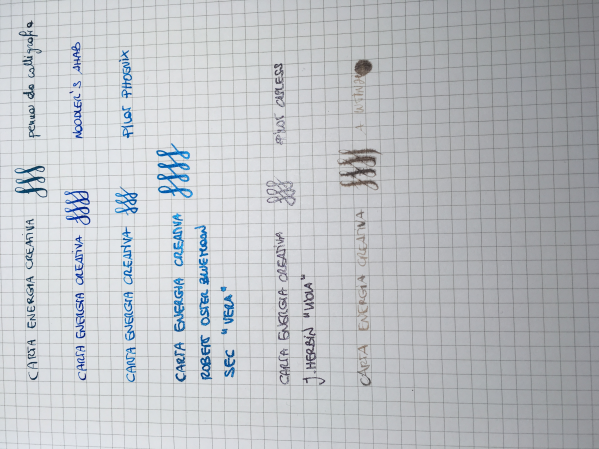 CARTA ENERGIA CREATIVA fff penna da calligrafia
CARTA ENERGIA CREATIVA ffff NOODLER'S AHAB
CARTA ENERGIA CREATIVA fff PILOT PHOENIX
CARTA ENERGIA CREATIVA ffff
ROBERT OSTER
SEC "VERA"
CARTA ENERGIA CREATIVA fff PILOT CAPLESS
J. HERBIN
CARTA ENERGIA CREATIVA ffff